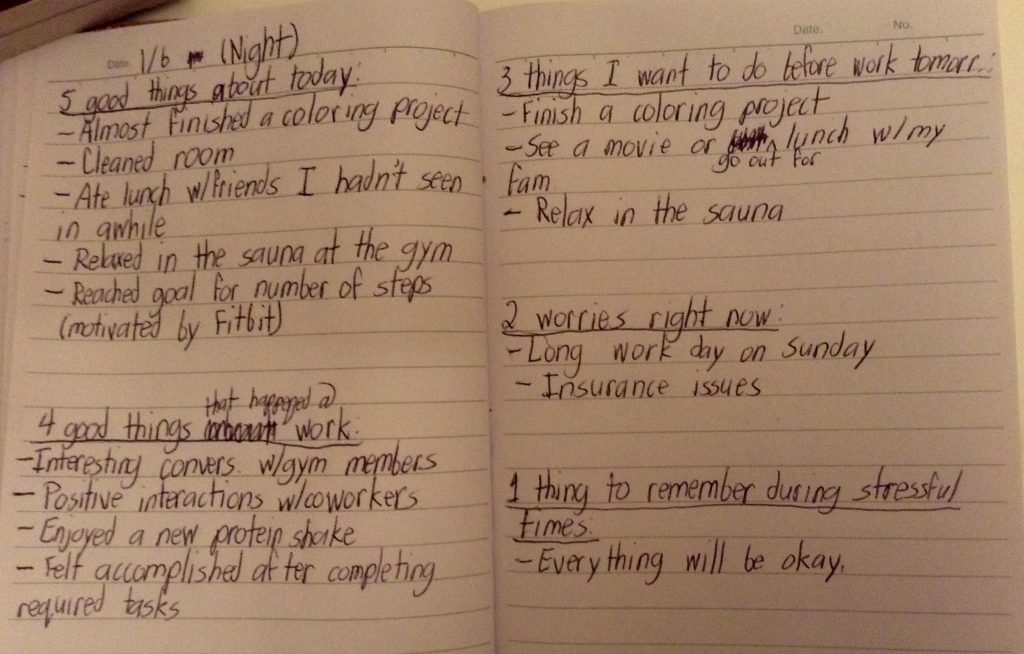 Date. 1/6 (Night)
5 good things about today:
- Almost finished a coloring project
- Cleaned room
- Ate lunch w/friends I hadn't seen
in awhile
- Relaxed in the sauna at the gym
- Reached goal for number of steps
(motivated by Fitbit)
that happened @
4 good things work:
- Interesting convers. w/gym members
- Positive interactions w/coworkers
- Enjoyed a new protein shake
- Felt accomplished after completing
required tasks
Date. No.
3 things I want to do before work tomorr.:
- Finish a coloring project
- See a movie or ^ lunch w/my
go out for
fam
- Relax in the sauna
2 worries right now:
- Long work day on Sunday
- Insurance issues
1 thing to remember during stressful
times:
- Everything will be okay.